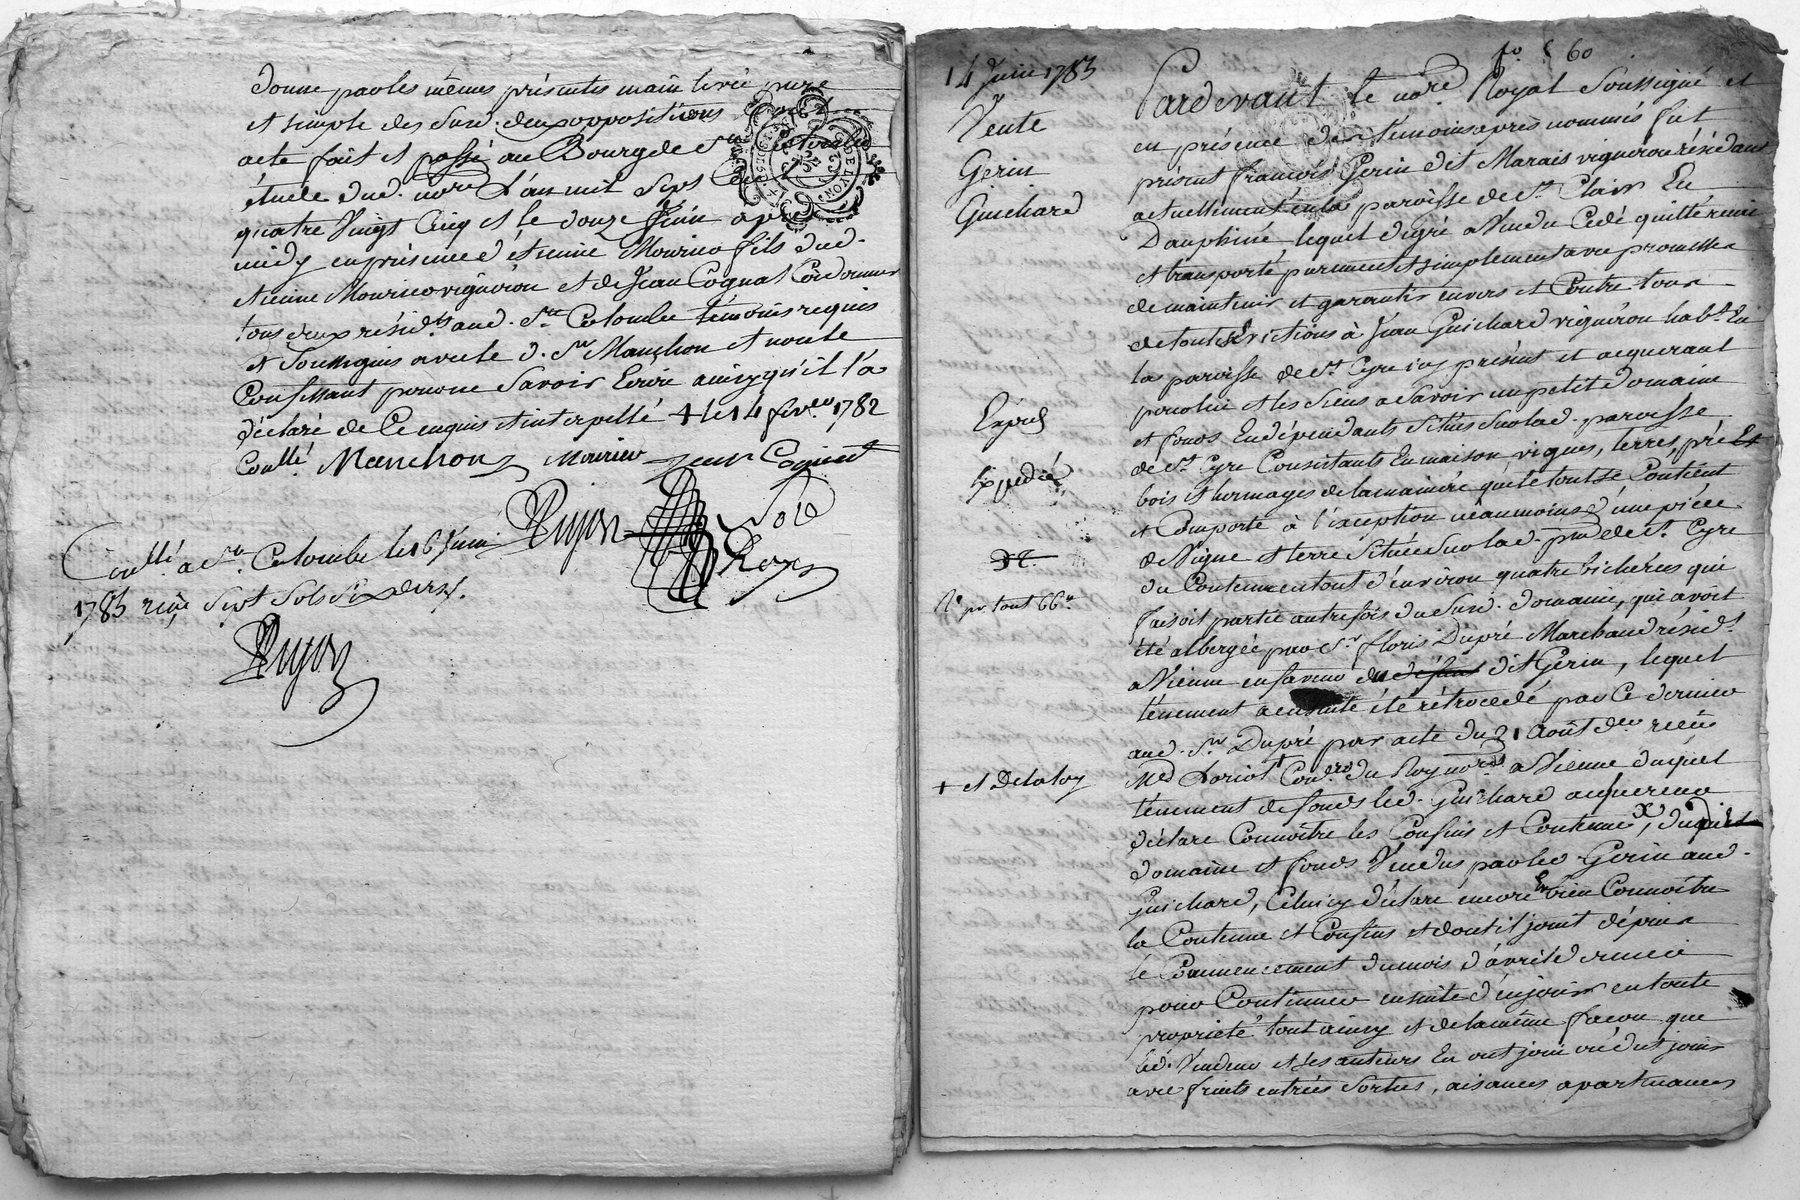 donne par les mêmes présentes main levée pure
et simple des susd. deux oppositions
acte fait et passé au Bourg de Ste Colombe
étude dud. nore L'an mil sept Cent
quatre Vingt Cinq et le douze Juin après
midy en présence d'étienne Mourier fils dud.
etienne Mourier vigneron et de Jean Cognat Cordonnier
tous deux résidts aud. Ste Colombe témoins requis
et Soussignés avec le d. Sr Manchon et non le
Confessant pour ne Savoir Ecrire ainsy qu'il l'a
déclaré de Ce enquis et interpellé + le 14 fevrer 1782
Conllé Manchon Mourier jean Cognat
Dujon
Conllé à Ste Colombe le 16 Juin
1785 reçu Sept Sols Six deniers.
Dujon
fo 60
14 Juin 1785
Vente
Gerin
Guichard
Expéé
Expédiée
Re pr. tout 66
+ et Delaloy
Pardevant le nore Royal Soussigné et
en présence des témoins après nommés fut
présent françois Gerin dit Marais vigneron résidant
actuellement en la paroisse de St Clair En
Dauphiné lequel de gré a Vendu Cedé quitté remis
et transporté purement et simplement avec promesse
de maintenir et garantir envers et Contre tous
de toutes Evictions à Jean Guichard vigneron habt. En
la paroisse de St Cyre icy présent et acquerant
pour lui et les Siens a Savoir un petit domaine
et fonds En dépendants Situés Sur lad. paroisse
de St Cyre Consistants En maison vignes, terres, prés Et
bois et hermages de la manière que le tout Se Contient
et Comporte à l'exception néanmoins d'une pièce
de Vigne et terre Située Sur lad. psse de St Cyre
du Contenu en tout d'environ quatre bicherées qui
faisoit partie autrefois du Susd. domaine, qui avoit
été albergée par Sr floris Dupré Marchand résidt
a Vienne en faveur du dit Gerin, lequel
tènement a ensuite été rétrocedé par Ce dernier
aud. Sr Dupré par acte du 21 Août der reçu
Me Loriot + Conler du Roy nore a Vienne duquel
tènement de fonds led. Guichard acquereur
déclare Connoitre les Confins et Contenue, duquel
domaine et fonds Vendus par led Gerin aud.
Guichard, Celui cy déclare encore bien Connoître
la Contenue et Confins et dont il jouit dépuis
le Commencement du mois d'avril dernier
pour Continuer ensuite d'en jouir en toute
proprieté tout ainsy et de la même façon que
led. Vendeur et Ses auteurs En ont joui ou dut jouir
avec fruits entrées Sorties, aisances apartenances